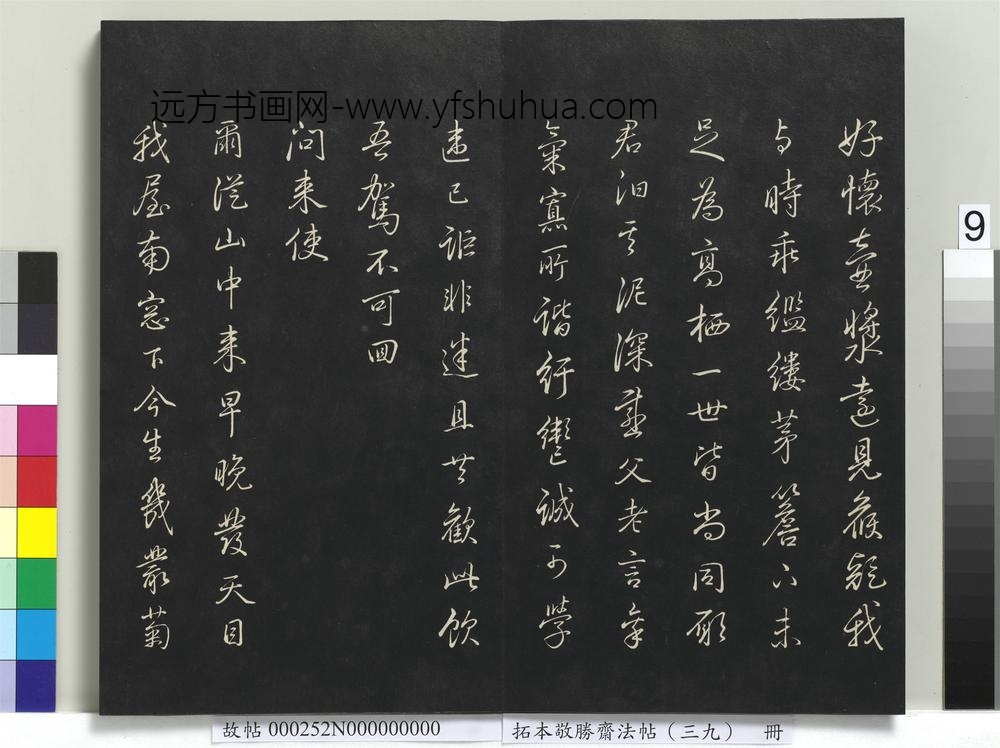 远方书画网-www.yfshuhua.com
好懷壺漿遠見候疑我
与時乖繿縷茅簷下未
足為高栖一世皆尚同願
君汩其泥深感父老言稟
氣寡所諧紆轡誠可學
違己詎非迷且共歡此飲
吾駕不可囬
問来使
爾從山中来早晚發天目
我屋南窓下今生幾叢菊
9
故帖 000252N000000000
拓本敬勝齋法帖（三九） 冊